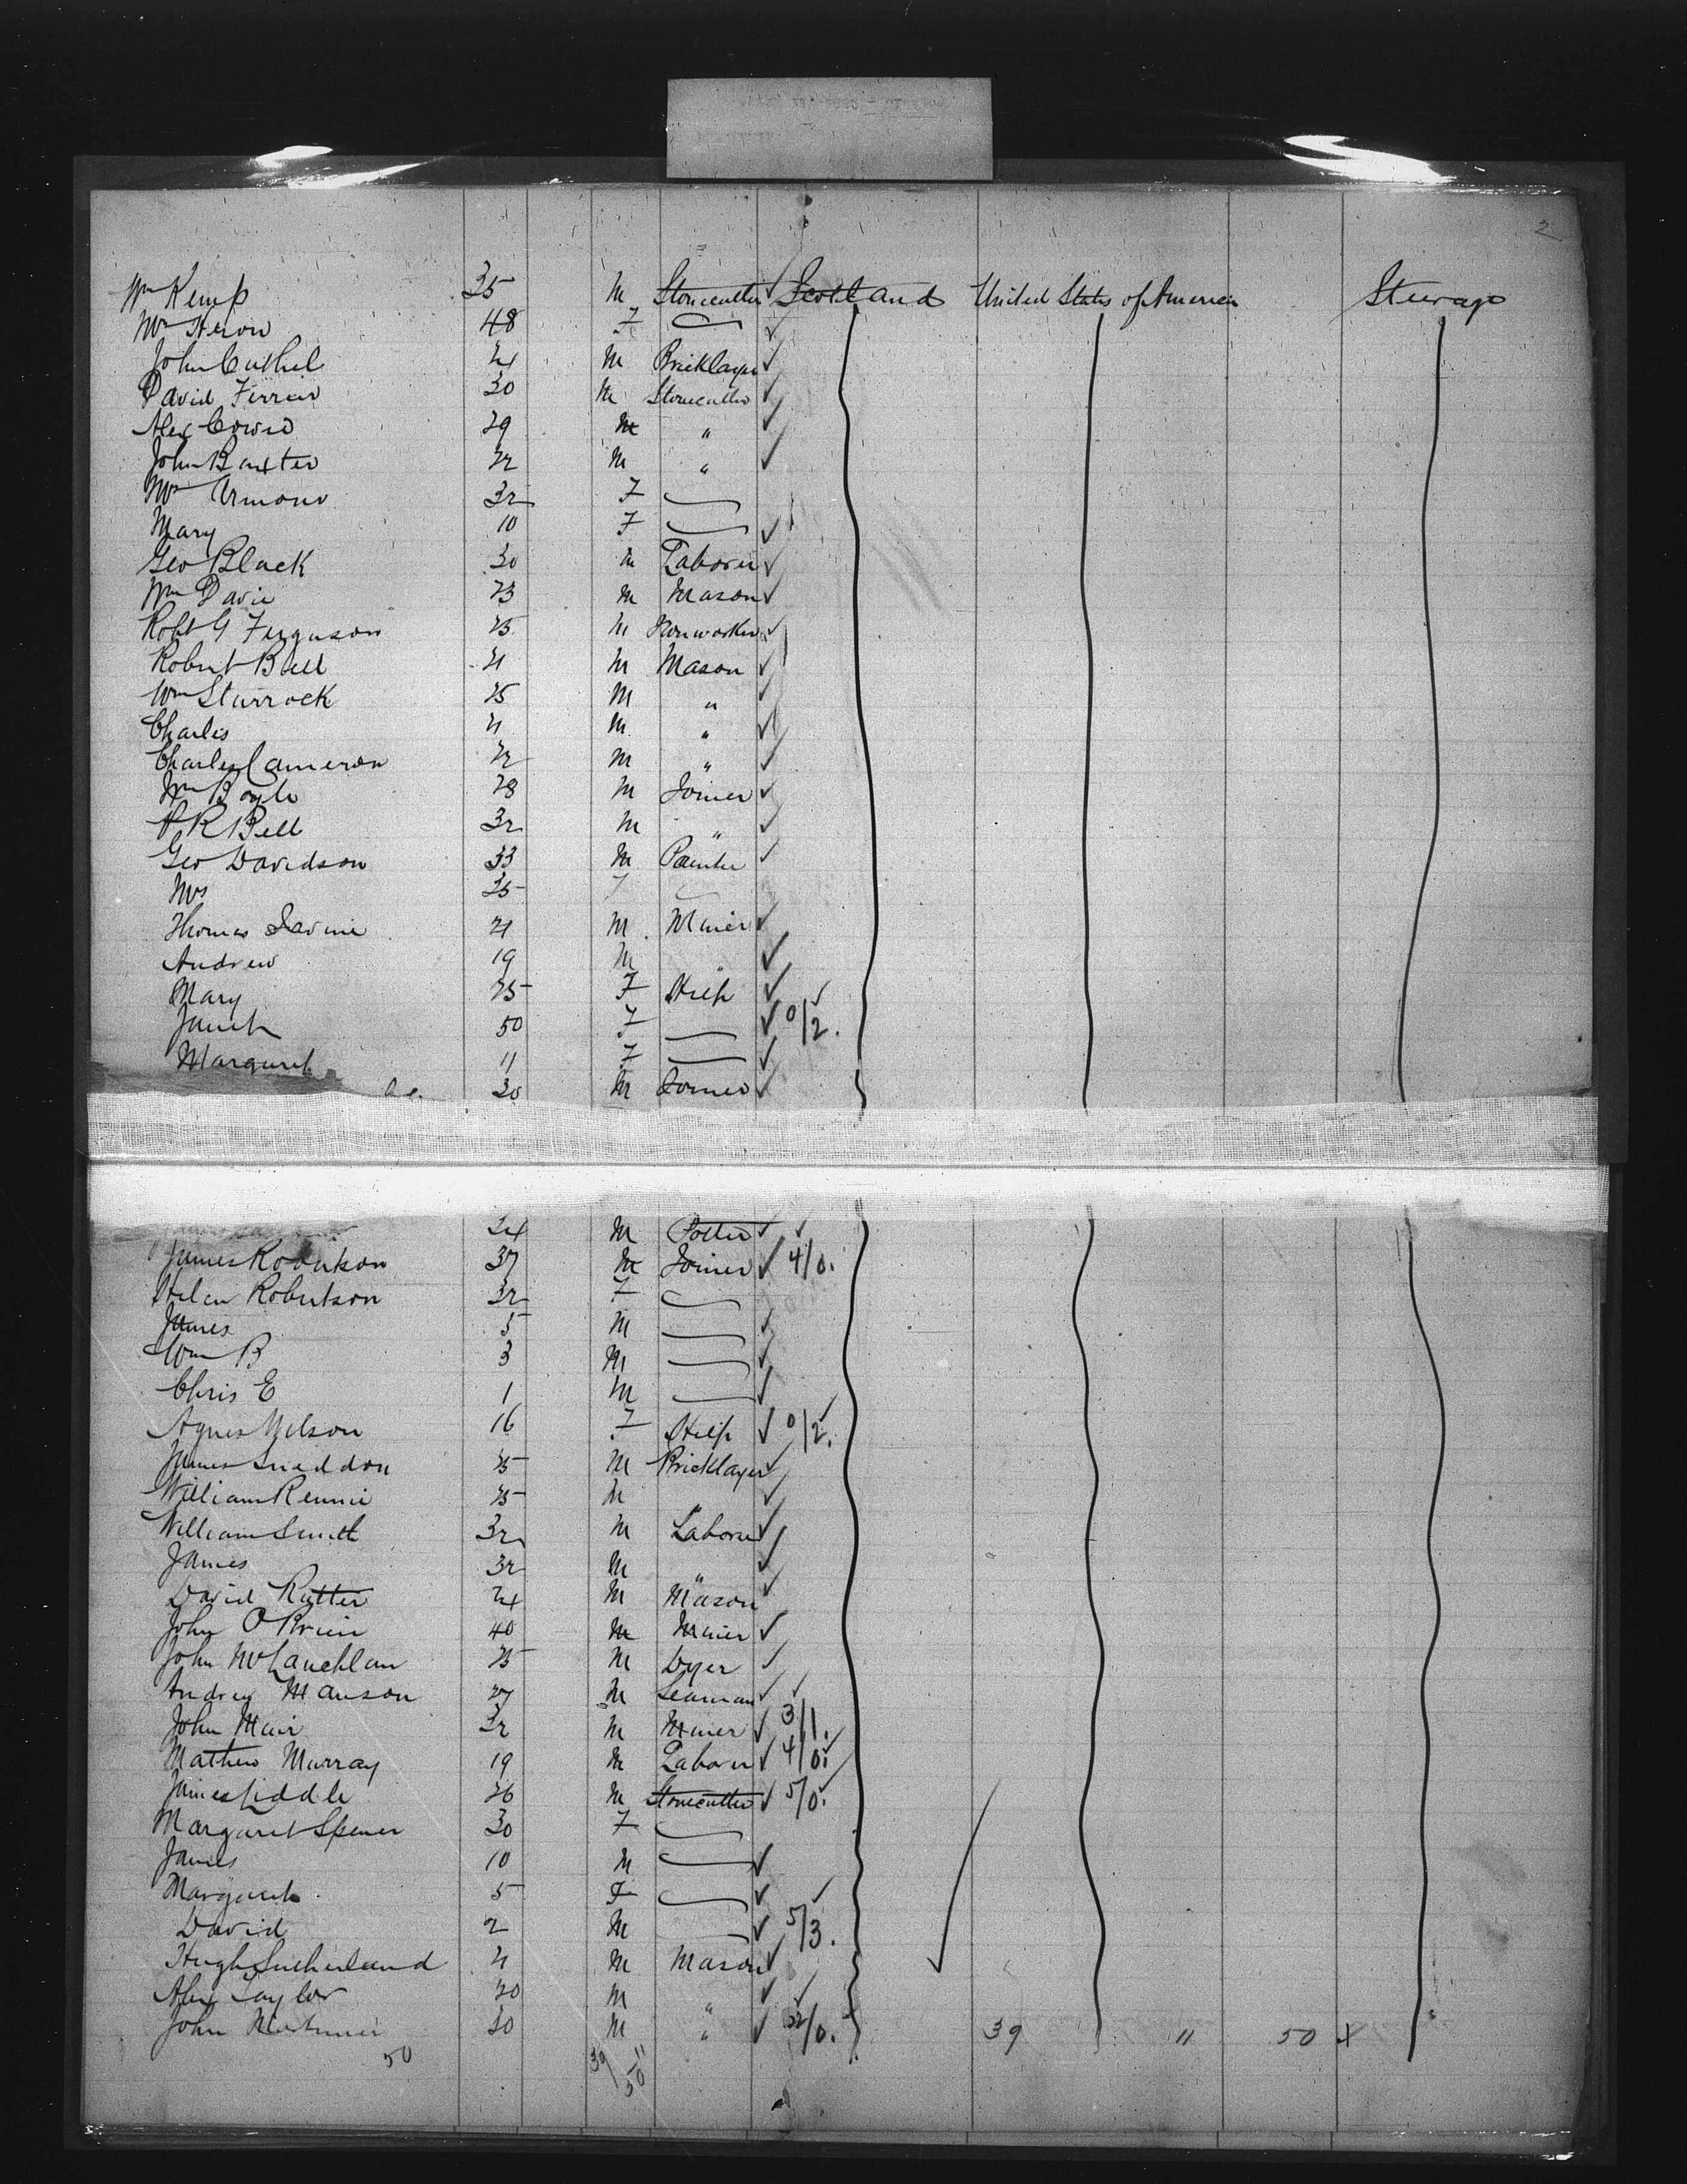 2
Wm Kemp 35 M Stonecutter Scotland United States of America Steerage
Mrs Heron 48 F
John Cuthil 24 M Bricklayer
David Ferrier 30 M Stonecutter
Alex Cowie 29 M "
John Baxter 22 M "
Mrs Urmond 32 F
Mary 10 F
Geo Black 30 M Laborer
Wm Davie 23 M Mason
Robt G Ferguson 25 M Ironworker
Robert Bell 21 M Mason
Wm Sturrock 25 M "
Charles 21 M "
Charles Cameron 22 M "
Wm Boyle 28 M Joiner
R Bell 32 M "
Geo Davidson 33 M Painter
Mrs 35 F
Thomas 21 M Miner
Andrew 19 M "
Mary 25 F Help
Janet 50 F 0/2.
Margaret 11 F
30 M Joiner
24 M Potter
James Robertson 37 M Joiner 4/0.
Helen Robertson 32 F
James 5 M
Wm B 3 M
Chris E 1 M
Agnes Wilson 16 F Help 0/2.
James Sneddon 25 M Bricklayer
William Rennie 25 M "
William Smith 32 M Laborer
James 32 M "
David Rutter 24 M Mason
John O'Brien 40 M Miner
John McLauchlan 25 M Dyer
Andrew Manson 27 M Seaman
John Mair 32 M Miner 3/1.
Mathew Murray 19 M Laborer 4/0.
James Liddle 26 M Stonecutter 5/0.
Margaret Spencer 30 F
James 10 M
Margaret 5 F
David 2 M 5/3.
Hugh Sutherland 21 M Mason
Alex Taylor 20 M "
John Mortimer 30 M " /0. 39 11 50 X
50 39/11 50